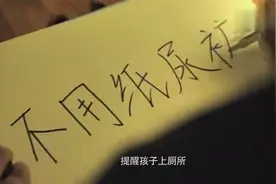 不用纸尿裤
提醒孩子上厕所